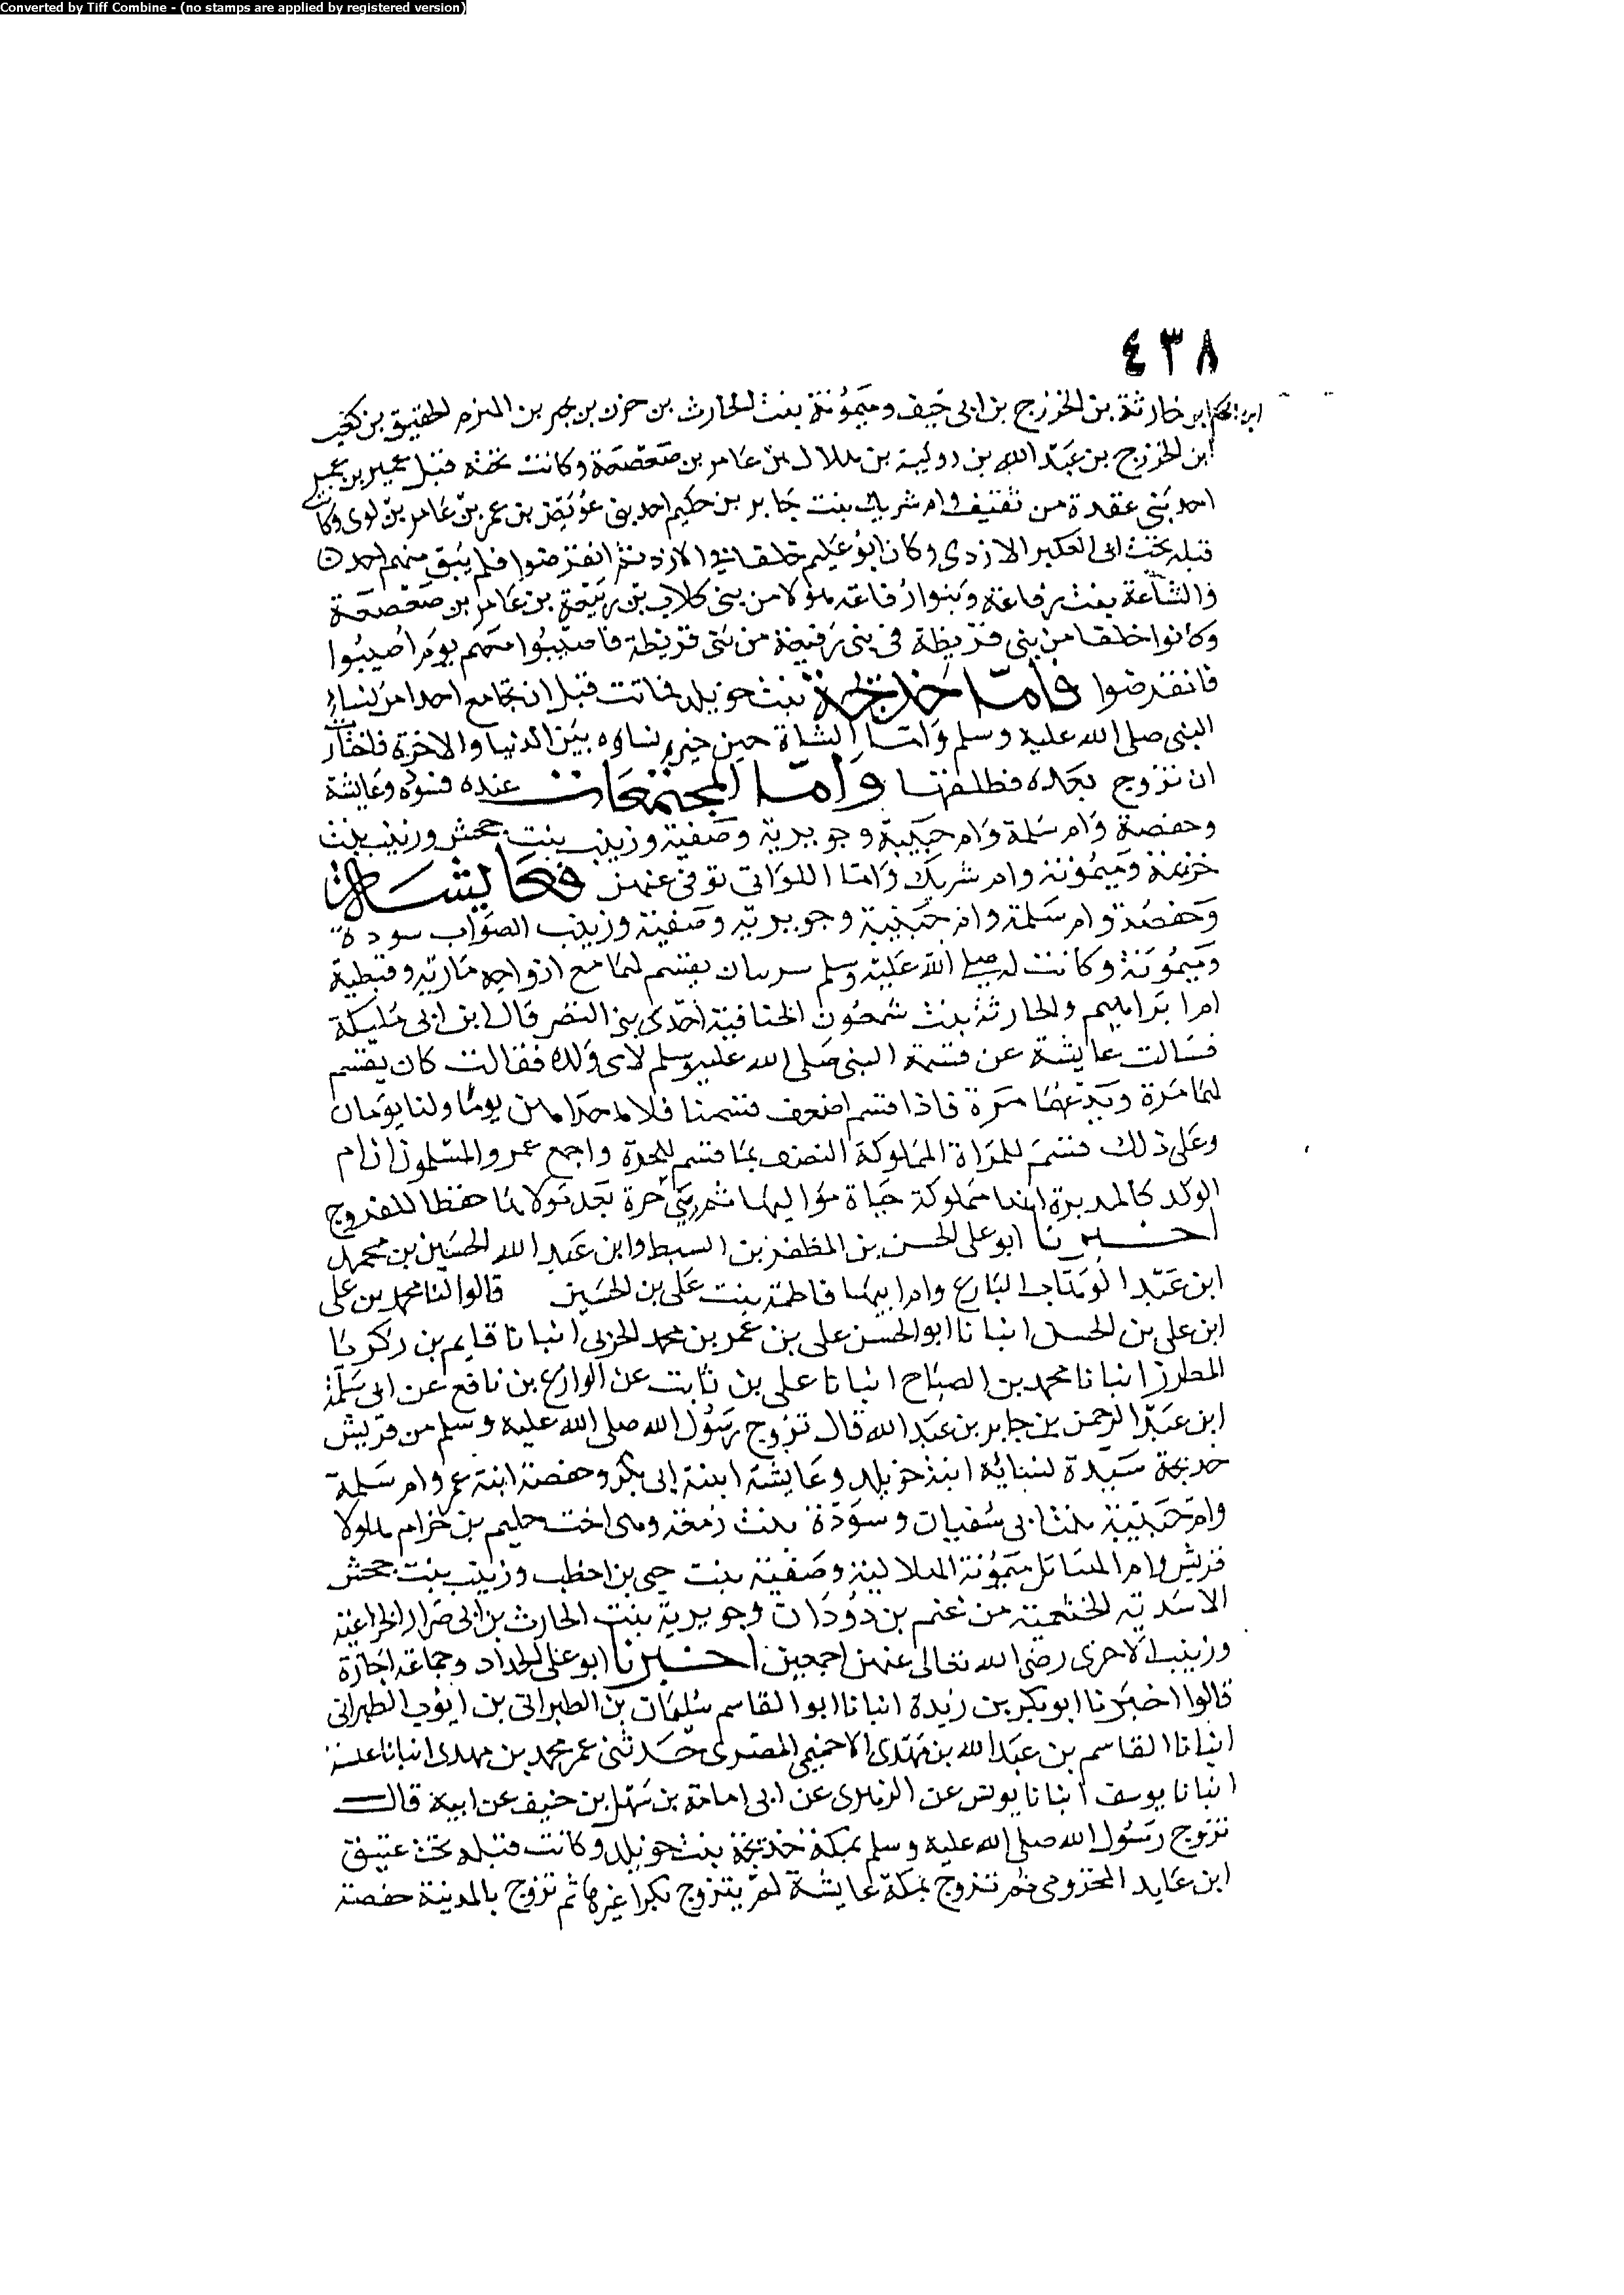 Converted by Tiff Combine - (no stamps are applied by registered version)
٤٣٨
ابن خارثة بن الخزرج بن ابى حبف وميمونة بنت الحارث بن حزن بن بجر بن الهزم الحقيق بن كعب
ابن الخزرج بن عبد الله بن رويبة بن هلال بن عامر بن صعصعة وكانت تحته قبل عمير بن
احد بنى عقدة من ثقيف وام شريك بنت جابر بن حكيم احد بنى عمر بن عامر بن لوى وكانت
قبله تحت ابى العكير الازدى وكان ابو حلفا فى الازد ثم انقرضوا فلم يبق منهم احد
والشاة بنت رفاعة وبنوا رفاعة هولا من بنى كلاب بن ربيعة بن عامر بن صعصعة
وكانوا حلفا من بنى قريظة فى بنى رفيعة من بنى قريظة فاصيبوا معهم يوم اصيبوا
فانقرضوا فاما خديجة بنت خويلد فماتت قبل ان تجامع احدا من نساء
النبى صلى الله عليه وسلم واما الشاة حين خير نساوه بين الدنيا والاخرة فاختارت
ان تزوج بعده فطلقها واما المجتمعات عنده فسودة وعايشة
وحفصة وام سلمة وام حبيبة وجويرية وصفية وزينب بنت جحش وزينب بنت
خزيمة وميمونة وام شريك واما اللواتى توفى عنهن فعايشة
وحفصة وام سلمة وام حبيبة وجويرية وصفية وزينب الصواب سودة
وميمونة وكانت له صلى الله عليه وسلم سريتان يقسم لهما مع ازواجه مارية وقبطية
ام ابراهيم والحارثة بنت شمعون الخنافية احدى بنى النضر قال ابن ابى مليكة
فسالت عايشة عن قسمة النبى صلى الله عليه وسلم لاى ولده فقالت كان يقسم
لهما مرة ويدعهما مرة فاذا قسم اضعف قسمنا فلاحداهن يوما ولنا يومان
وعلى ذلك قسم للمراة المملوكة النصف مما قسم للحرة واجمع عمر والمسلمون ان ام
الولد كالمدبرة انها مملوكة حياة مواليها ثم حرة بعد مولاها حفظا للفروج
اخبرنا ابو على الحسن بن المظفر بن السبط وابن عبد الله الحسين بن محمد
ابن عبد الوهاب البارع وام ابيها فاطمة بنت على بن الحسين قالوا انا محمد بن على
ابن على بن الحسن انبانا ابو الحسن على بن عمر بن محمد الحربى انبانا قاسم بن زكريا
المطرز انبانا محمد بن الصباح انبانا على بن ثابت عن الوازع بن نافع عن ابى سلمة
ابن عبد الرحمن بن جابر بن عبد الله قال تزوج رسول الله صلى الله عليه وسلم من قريش
خديجة سيدة نسائه ابنة خويلد وعايشة ابنة ابى بكر وحفصة ابنة عمر وام سلمة
وام حبيبة بنت ابى سفيان وسودة بنت زمعة وهى اخت حليم بن حزام هولا
قريش وام المساكين ميمونة الهلالية وصفية بنت حيى بن اخطب وزينب بنت جحش
الاسدية الخثعمية من غنم بن دودان وجويرية بنت الحارث بن ابى ضرار الخزاعية
وزينب الاخرى رضى الله تعالى عنهن اجمعين اخبرنا ابو على الحداد وجماعة اجازة
قالوا اخبرنا ابو بكر بن ريذة انبانا ابو القاسم سليمان بن الطبرانى بن ايوب الطبرانى
انبانا القاسم بن عبد الله بن مهدى الاخميمى المصرى حدثنى عمر محمد بن مهدى انبانا عنبسة
انبانا يوسف انبانا يونس عن الزهرى عن ابى امامة بن سهل بن حنيف عن ابيه قال
تزوج رسول الله صلى الله عليه وسلم بمكة خديجة بنت خويلد وكانت قبله تحت عتيق
ابن عايد المخزومى ثم تزوج بمكة عايشة لم يتزوج بكرا غيرها ثم تزوج بالمدينة حفصة